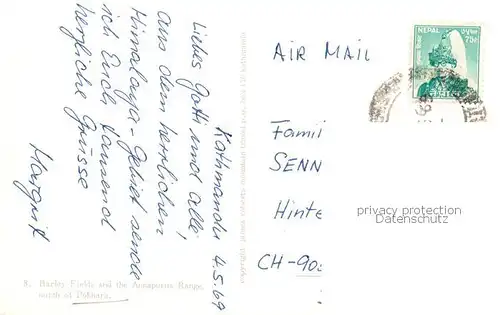 Kathmandu 4.5.69
Liebes Gotti und alle,
aus dem herrlichen
Himalaya-Gebiet sende
ich Euch tausend
herzliche Grüsse
Margrit
8. Barley Fields and the Annapurna Range,
north of Pokhara.
AIR MAIL
NEPAL
Famil
SENN
Hinte
CH-90
privacy protection
Datenschutz